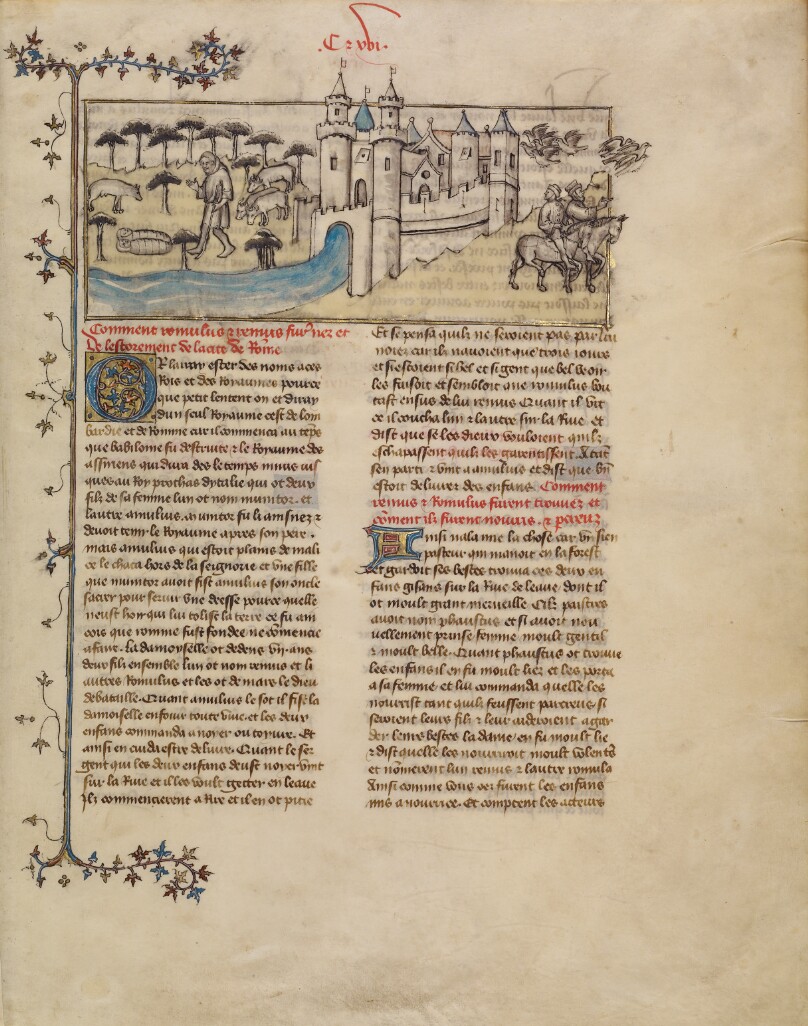 .C xvi.
Comment romulus & remus furent nez et
De lestorement de la cite de Rome
OR lairay ester des noms a ces
Rois et des Royaumes pource
que petit lentent on et diray
dun seul Royaume cest de lom
bardie et de Romme car il commenca au teps
que babilone fu destruite & le Royaume des
assiriens qui dura des le temps ninus ius
ques au Roy prochas dytalie qui ot deux
filz de sa femme lun ot nom munitor. et
lautre amulius. Munitor fu li ainsnez &
devoit tenir le Royaume apres son pere.
mais amulius qui estoit plains de mali
ce le chaca hors de la seignorie et une fille
que munitor avoit fist amulius son oncle
sacrer pour servir une deesse pource quelle
neust hoir qui lui tolist la terre ce fu ain
cois que romme fust fondee ne comencie
a faire. La damoyselle ot dedens .vii. ans
deux filz ensemble lun ot nom remus et li
autres Romulus et les ot de mars le dieu
de bataille. Quant amulius le sot il fist la
damoiselle enfouir toute vive. et les deux
enfans commanda a noyer ou torture. Et
ainsi en cuida estre delivre. Quant le ser
gent qui les deux enfans deust noyer vint
sur la Rive et il les voult getter en leaue
Ilz commencierent a Rire et il en ot pitie
Et se pensa quilz ne seroient pas par lui
noiez car ilz navoient que trois iours
et si estoient si bel et si gent que bel veoir
les faisoit et sembloit que romulus bou
tast ensus de lui remus Quant il vit
ce il coucha lun & lautre sur la Rive et
dist que se les dieux vouloient quilz
eschapassent quilz les garentissent. Atant
sen parti & vint a amulius et dist que bn
estoit delivre des enfans. Comment
remus & Romulus furent trouvez et
coment ilz furent nourris. & perceuz
Einsi rala nne la chose car un sien
pasteur qui manoit en la forest
et gardoit ses bestes trouva ces deux en
fans gisans sur la Rive de leaue dont il
ot moult grant merveille. Cilz paistres
avoit nom phaustus et si avoit nou
vellement prinse femme moult gentil
& moult belle. Quant phaustus ot trouve
les enfans il en fu moult liez et les porta
a sa femme. et lui commanda quelle les
nourrist tant quilz feussent parcreus. si
seroient leurs filz & leur aideroient a gar
der leurs bestes la dame en fu moult lie
& dist quelle les nourriroit moult volents
et nomerent lun remus & lautre romulus
Ainsi comme vous oez furent les enfans
mis a nourrice. Et comptent les acteurs